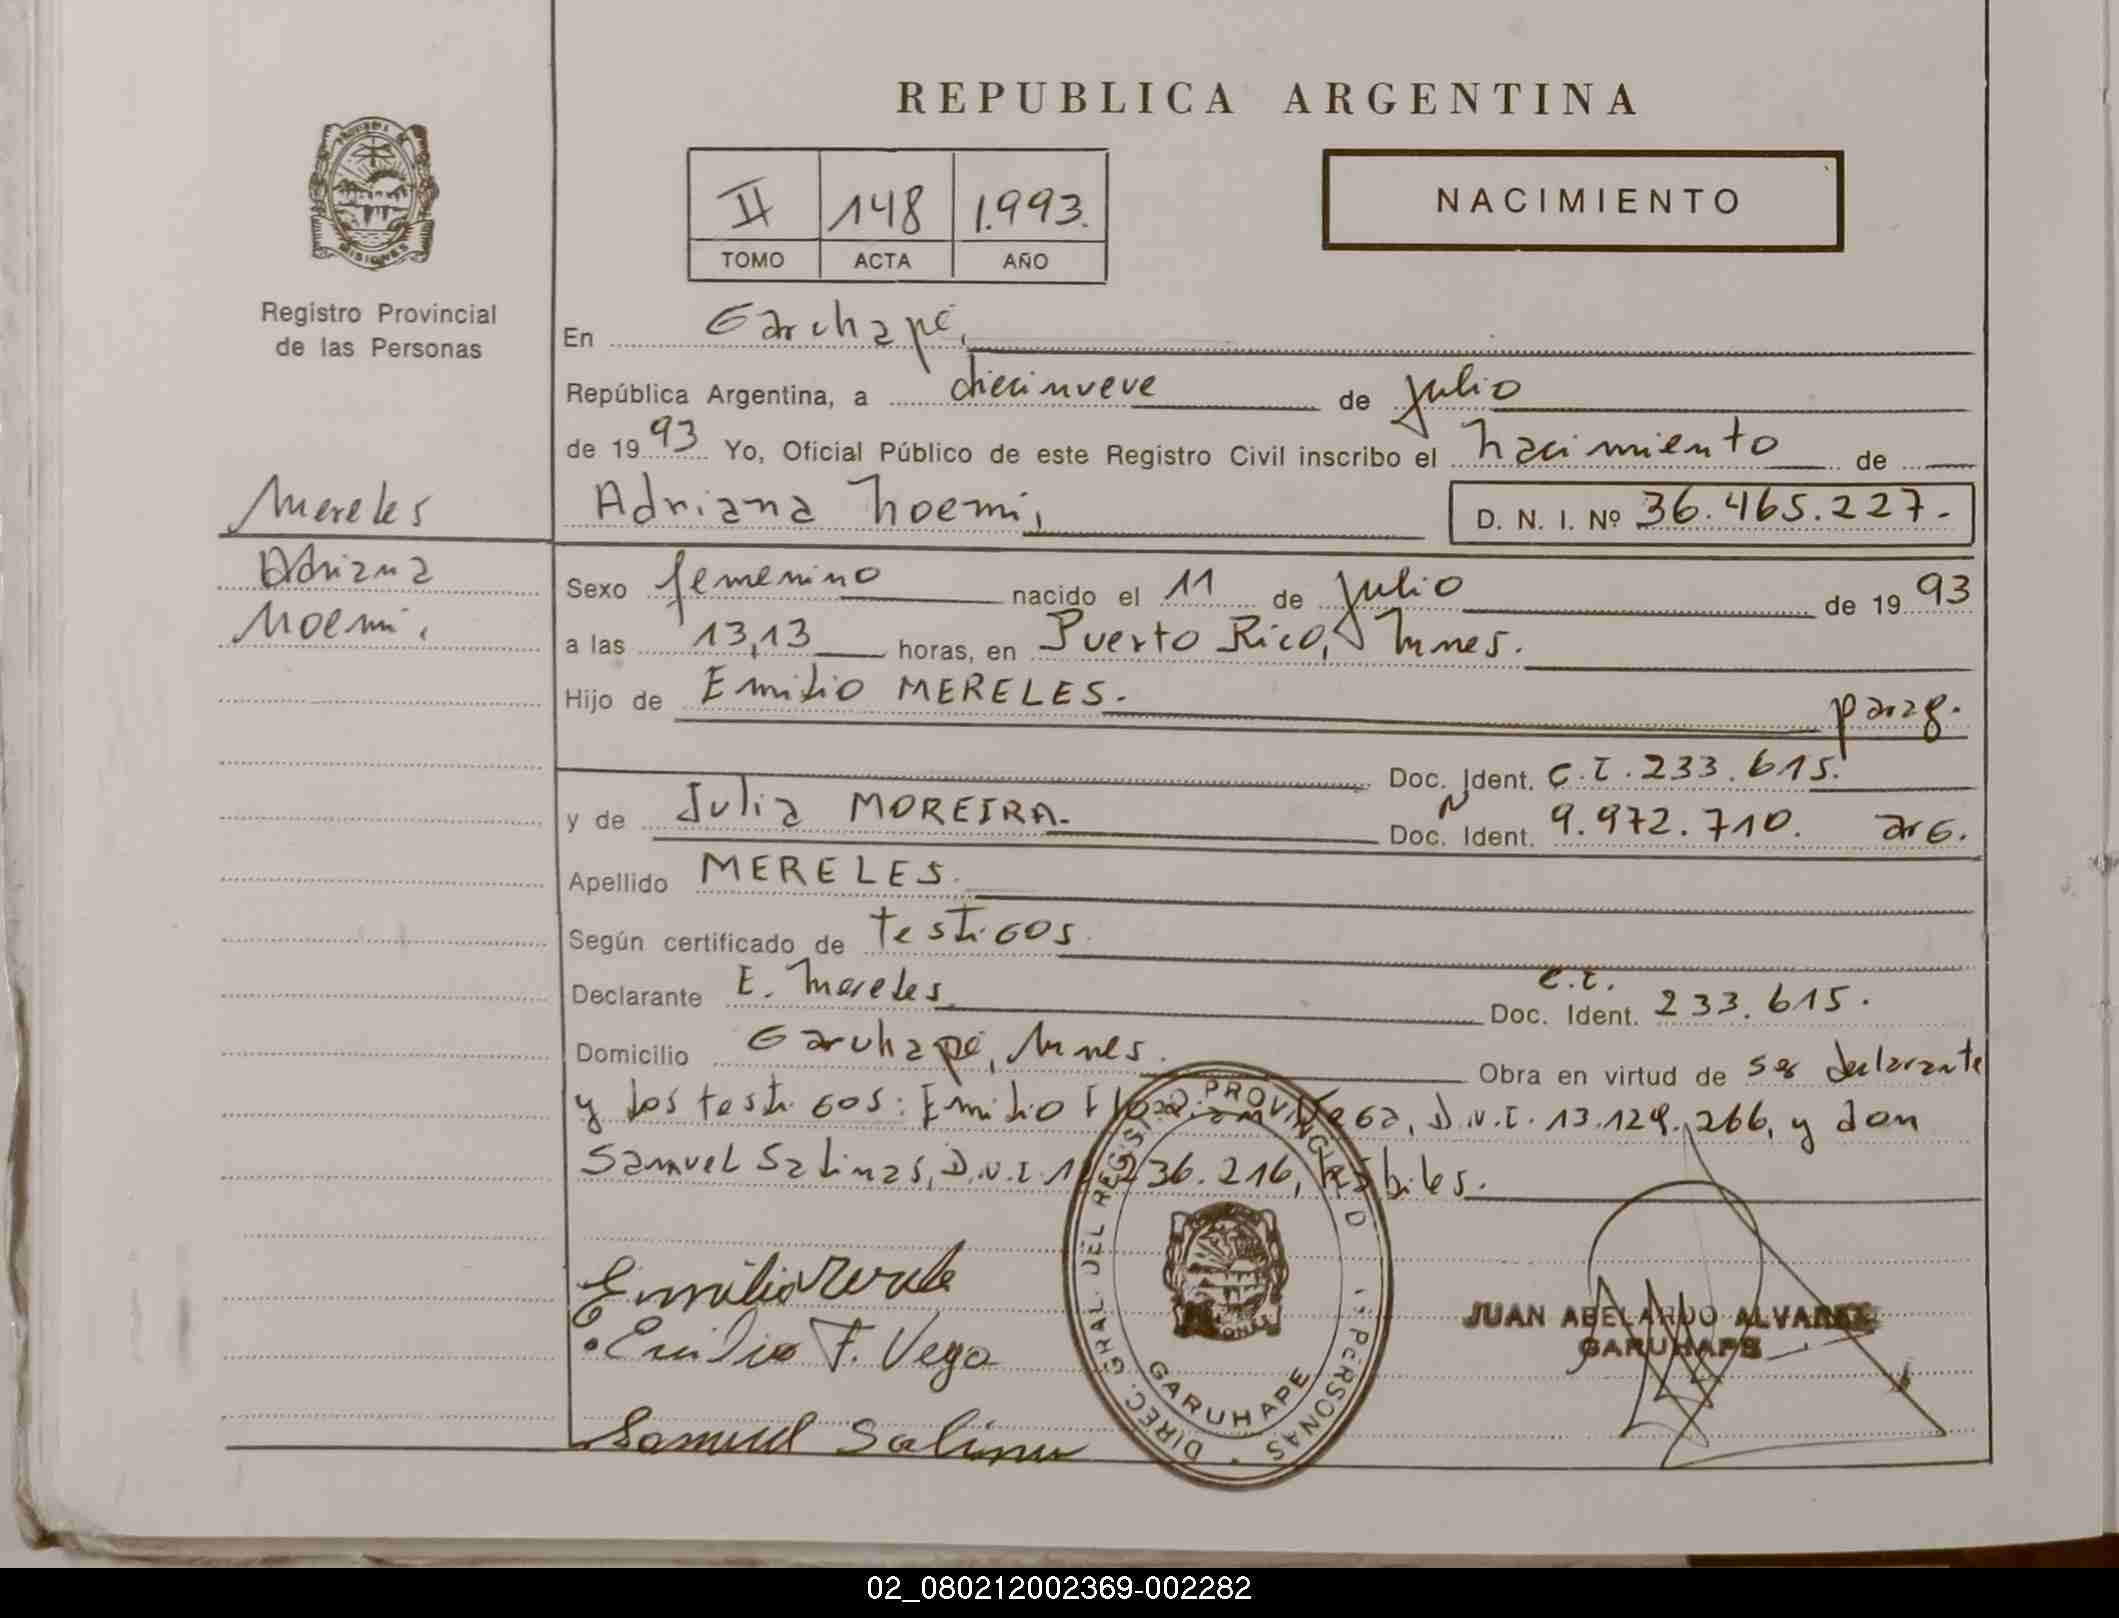 REPUBLICA ARGENTINA
II 148 1.993.
TOMO ACTA AÑO
NACIMIENTO
MISIONES
Registro Provincial
de las Personas
Mereles
Adriana
Noemi.
En Garuhapé,
República Argentina, a diecinueve de julio
de 1993 Yo, Oficial Público de este Registro Civil inscribo el nacimiento de
Adriana Noemi, D. N. I. Nº 36.465.227.-
Sexo femenino nacido el 11 de julio de 1993
a las 13,13 horas, en Puerto Rico, Mnes.
Hijo de Emilio MERELES. parag.
Doc. Ident. C.I. 233.615.
y de Julia MOREIRA.- Doc. N Ident. 9.972.710. arg.
Apellido MERELES.
Según certificado de testigos.
Declarante E. Mereles C.I. Doc. Ident. 233.615.
Domicilio Garuhapé, Mnes. Obra en virtud de ser declarante
y los testigos: Emilio Vega, D.N.I. 13.129.266, y don
Samuel Salinas, D.N.I. 236.216, hábiles.
Emilio Merele
Emilio F. Vega
Samuel Salinas
DIREC. GRAL. DEL REGISTRO PROVINCIAL D PERSONAS
GARUHAPE
JUAN ABELARDO ALVAREZ
GARUHAPE
02_080212002369-002282